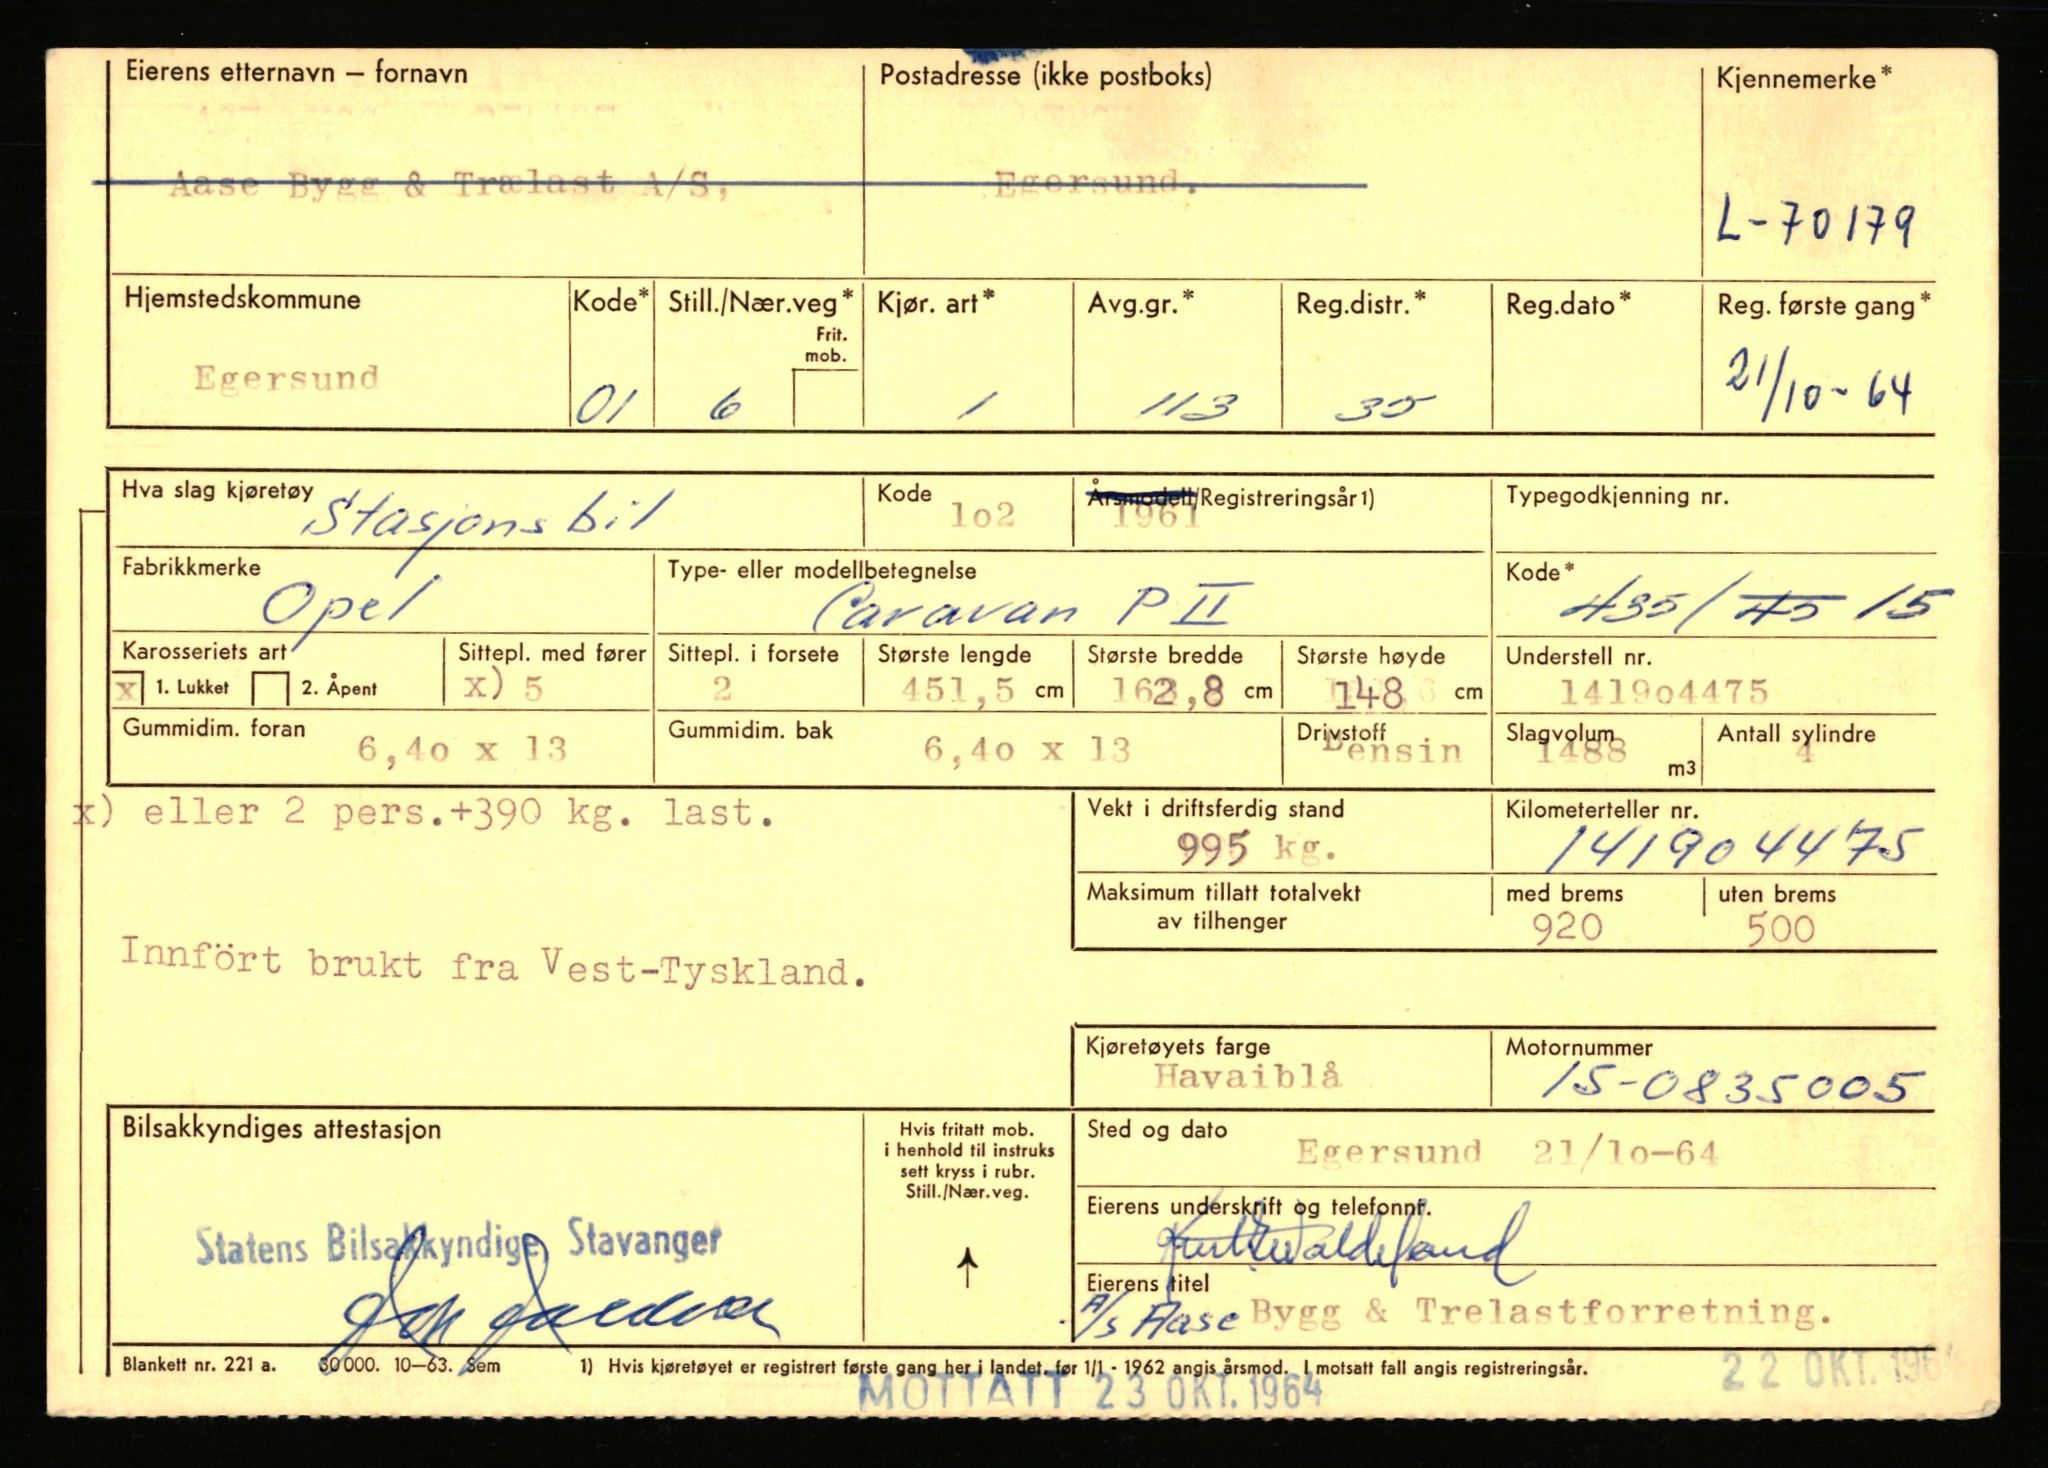 Eierens etternavn – fornavn
Postadresse (ikke postboks)
Kjennemerke*
Aase Bygg & Trælast A/S,
Egersund.
L-70179
Hjemstedskommune
Kode*
Still./Nær.veg*
Frit.
mob.
Kjør. art*
Avg.gr.*
Reg.distr.*
Reg.dato*
Reg. første gang*
Egersund
01
6
1
113
35
21/10-64
Hva slag kjøretøy
Stasjonsbil
Kode
1o2
Årsmodell/Registreringsår1)
1961
Typegodkjenning nr.
Fabrikkmerke
Opel
Type- eller modellbetegnelse
Caravan P II
Kode*
435/ 45 15
Karosseriets art
x 1. Lukket
2. Åpent
Sittepl. med fører
x) 5
Sittepl. i forsete
2
Største lengde
451,5 cm
Største bredde
162,8 cm
Største høyde
148 cm
Understell nr.
1419o4475
Gummidim. foran
6,4o x 13
Gummidim. bak
6,4o x 13
Drivstoff
Bensin
Slagvolum
1488
m3
Antall sylindre
4
x) eller 2 pers.+390 kg. last.
Vekt i driftsferdig stand
995 kg.
Kilometerteller nr.
141904475
Maksimum tillatt totalvekt
av tilhenger
med brems
920
uten brems
500
Innfört brukt fra Vest-Tyskland.
Kjøretøyets farge
Havaiblå
Motornummer
15-0835005
Bilsakkyndiges attestasjon
Hvis fritatt mob.
i henhold til instruks
sett kryss i rubr.
Still./Nær.veg.
Sted og dato
Egersund 21/1o-64
Eierens underskrift og telefonnr.
Statens Bilsakkyndige, Stavanger
Eierens titel
A/s Aase Bygg & Trelastforretning.
Blankett nr. 221 a. 30000. 10-63. Sem
1) Hvis kjøretøyet er registrert første gang her i landet før 1/1 - 1962 angis årsmod. I motsatt fall angis registreringsår.
MOTTATT 23 OKT. 1964
22 OKT. 196